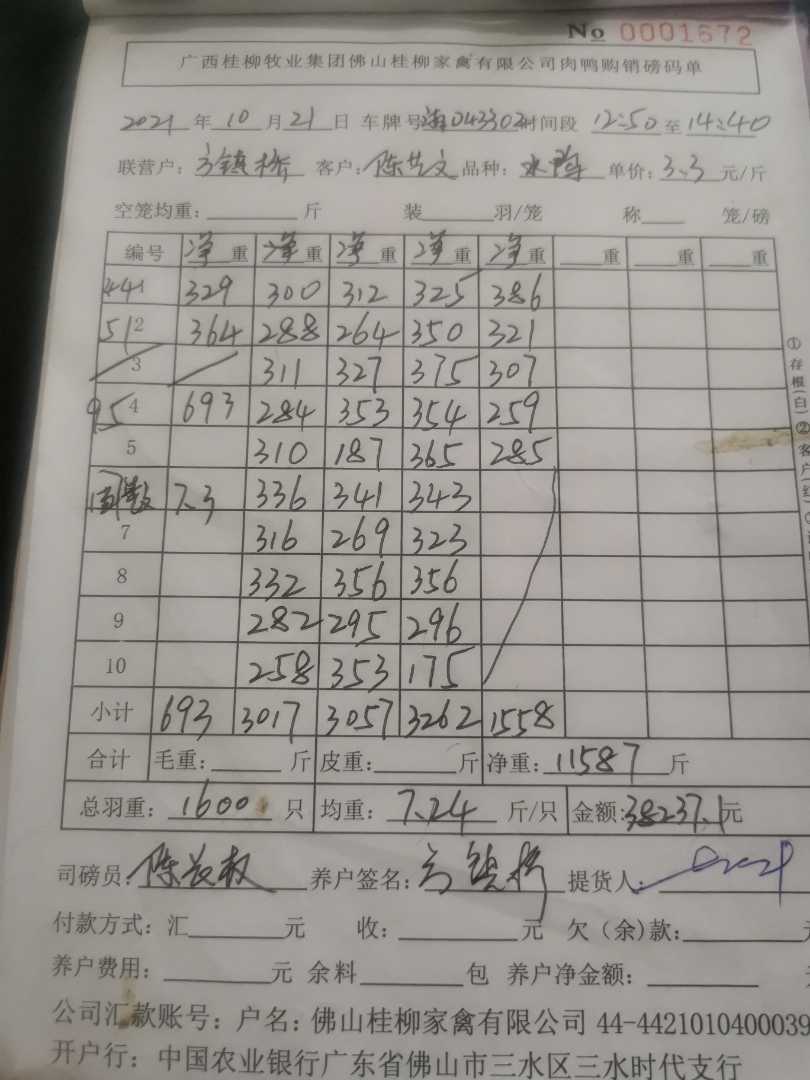 No 0001672
广西桂柳牧业集团佛山桂柳家禽有限公司肉鸭购销磅码单
2021年10月21日 车牌号 043302时间段 12:50至14:40
联营户: 镇桥 客户: 陈 文 品种: 水鸭 单价: 3.3元/斤
空笼均重: 斤 装 羽/笼 称 笼/磅
编号 净重 净重 净重 净重 净重 重 重 重
44 1 329 300 312 325 386
51 2 364 288 264 350 321
3 311 327 375 307
95 4 693 284 353 354 259
5 310 187 365 285
7.3 336 341 343
7 316 269 323
8 332 356 356
9 282 295 296
10 258 353 175
小计 693 3017 3057 3262 1558
合计 毛重: 斤 皮重: 斤 净重: 11587斤
总羽重: 1600只 均重: 7.24斤/只 金额:38237.1元
司磅员: 陈 权 养户签名: 镇桥 提货人:
付款方式: 汇 元 收: 元 欠(余)款: 元
养户费用: 元 余料 包 养户净金额:
公司汇款账号: 户名: 佛山桂柳家禽有限公司 44-4421010400039
开户行: 中国农业银行广东省佛山市三水区三水时代支行
①存根(白)②客户(红)